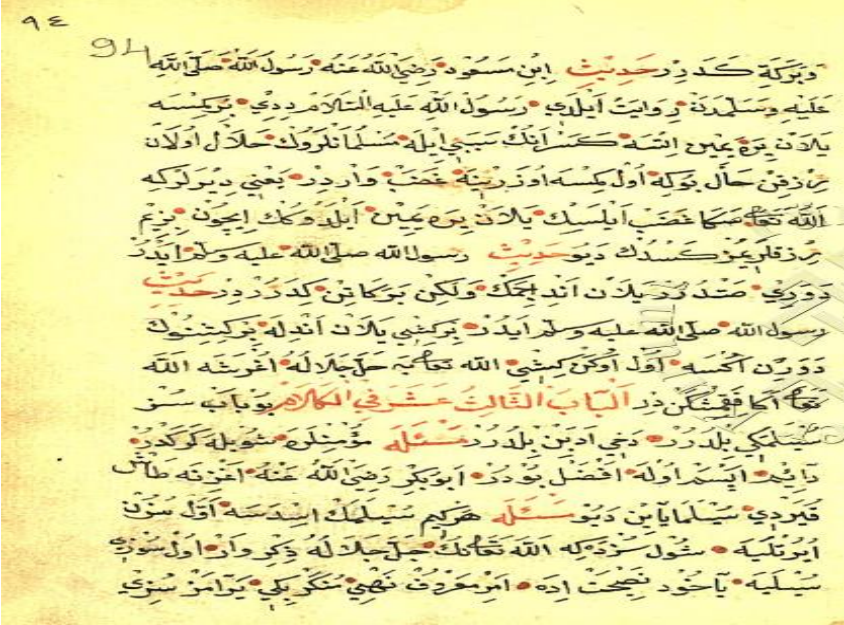 ٩٤
94
وبركة كدر در حديث ابن مسعود رضي الله عنه رسول الله صلى الله
عليه وسلمدن روايت ايلدي رسول الله عليه السلام ددي بر كمسه
يلان يره يمين اتسه كسر انك سببي ايله مسلمانلروك حلال اولان
رزقن حال بوكه اول كمسه اوزرينه غضب واردر يعني ديو لركه
الله تعالى صكا غضب ايلسك يلان يره يمين ايلدوكك ايچون بزم
رزقلريمز كسدك ديو حديث رسول الله صلى الله عليه وسلم ايدر
دوري يلان اند ايچمك ولكن بركاتن كدررر در حديث
رسول الله صلى الله عليه وسلم ايدر بر كشي يلان اندله بر كشينوك
دوررن اكسه اول اوكن كيشي الله تعالى يه جل جلاله اغرشه الله
تعالى اكا در الباب الثالث عشر في الكلام بو باب سز
سيلمكي بلدرر دخي ادبن بلدرر مسئله مؤمنلره شويله كركدر
دايم ايسم اوله افضل بودر ابو بكر رضي الله عنه اغزنه طاش
قيردي سيلمايين ديو مسئله هركيم سيلمك استدسه اول سوزن
ايرتليه شول سزدكه الله تعالىنك جل جلاله ذكري وار اول سوزي
سيليه ياخود نصيحت اده امر معروف نهي منكر بكي يرامز سزي